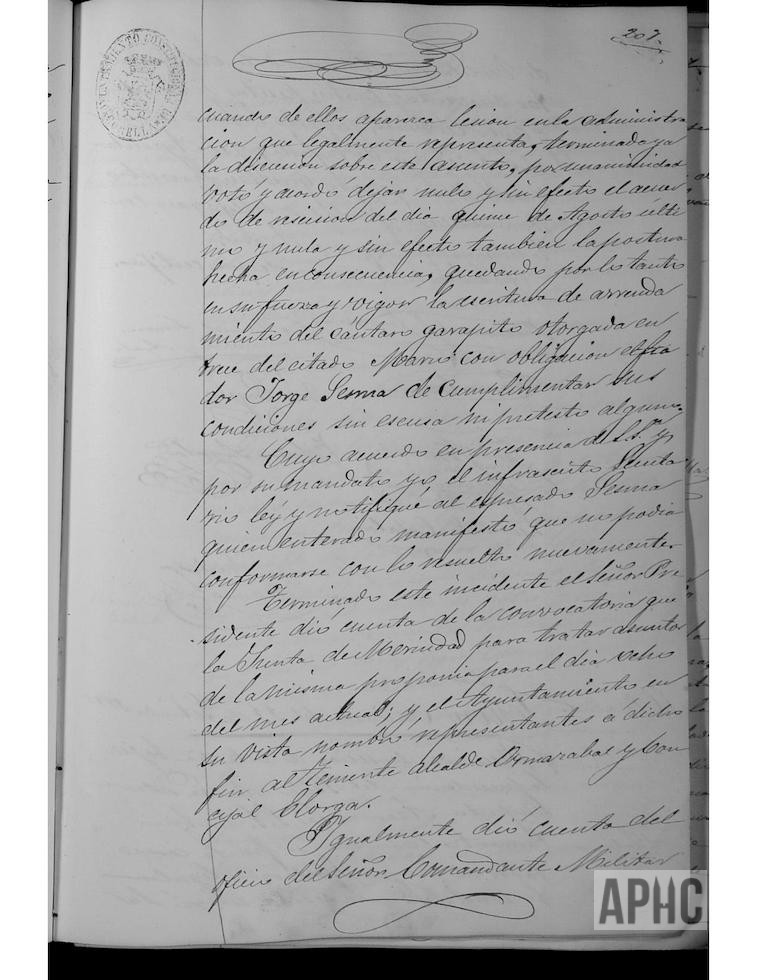 207.
AYUNTAMIENTO CONSTITUCIONAL DE
cuando de ellos aparezca lesion en la administra
cion que legalmente representa, terminada ya
la discusion sobre este asunto, por unanimidad
votó y acordó dejar nulo y sin efecto el acuer
do de rescision del dia quince de Agosto últi
mo y nula y sin efecto tambien la postura
hecha en consecuencia, quedando por lo tanto
en su fuerza y vigor la escritura de arrenda
miento del cántaro garapito otorgada en
trece del citado Marzo con obligacion el fia
dor Jorge Sesma de cumplimentar sus
condiciones sin escusa ni pretesto alguno.
Cuyo acuerdo en presencia de S.S.ª y
por su mandato yo el infrascrito Secreta
rio ley y notifiqué al espresado Sesma
quien enterado manifestó que no podia
conformarse con lo resuelto nuevamente.
Terminado este incidente el Señor Pre
sidente dió cuenta de la convocatoria que
la Junta de Merindad para tratar asuntos
de la misma proponia para el dia ocho
del mes actual; y el Ayuntamiento en
su vista nombró representantes á dicho
fin al teniente alcalde Ormazabal y Con
cejal Elorga.
Igualmente dió cuenta del
oficio del Señor Comandante Militar
APHC